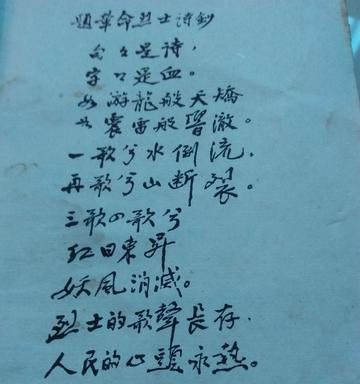 題革命烈士诗鈔
句々是诗，
字々是血。
如游龍般夭矯
如震雷般響澈。
一歌兮水倒流，
再歌兮山断裂。
三歌四歌兮
红日東昇
妖风消滅。
烈士的歌聲長存，
人民的心頭永热。